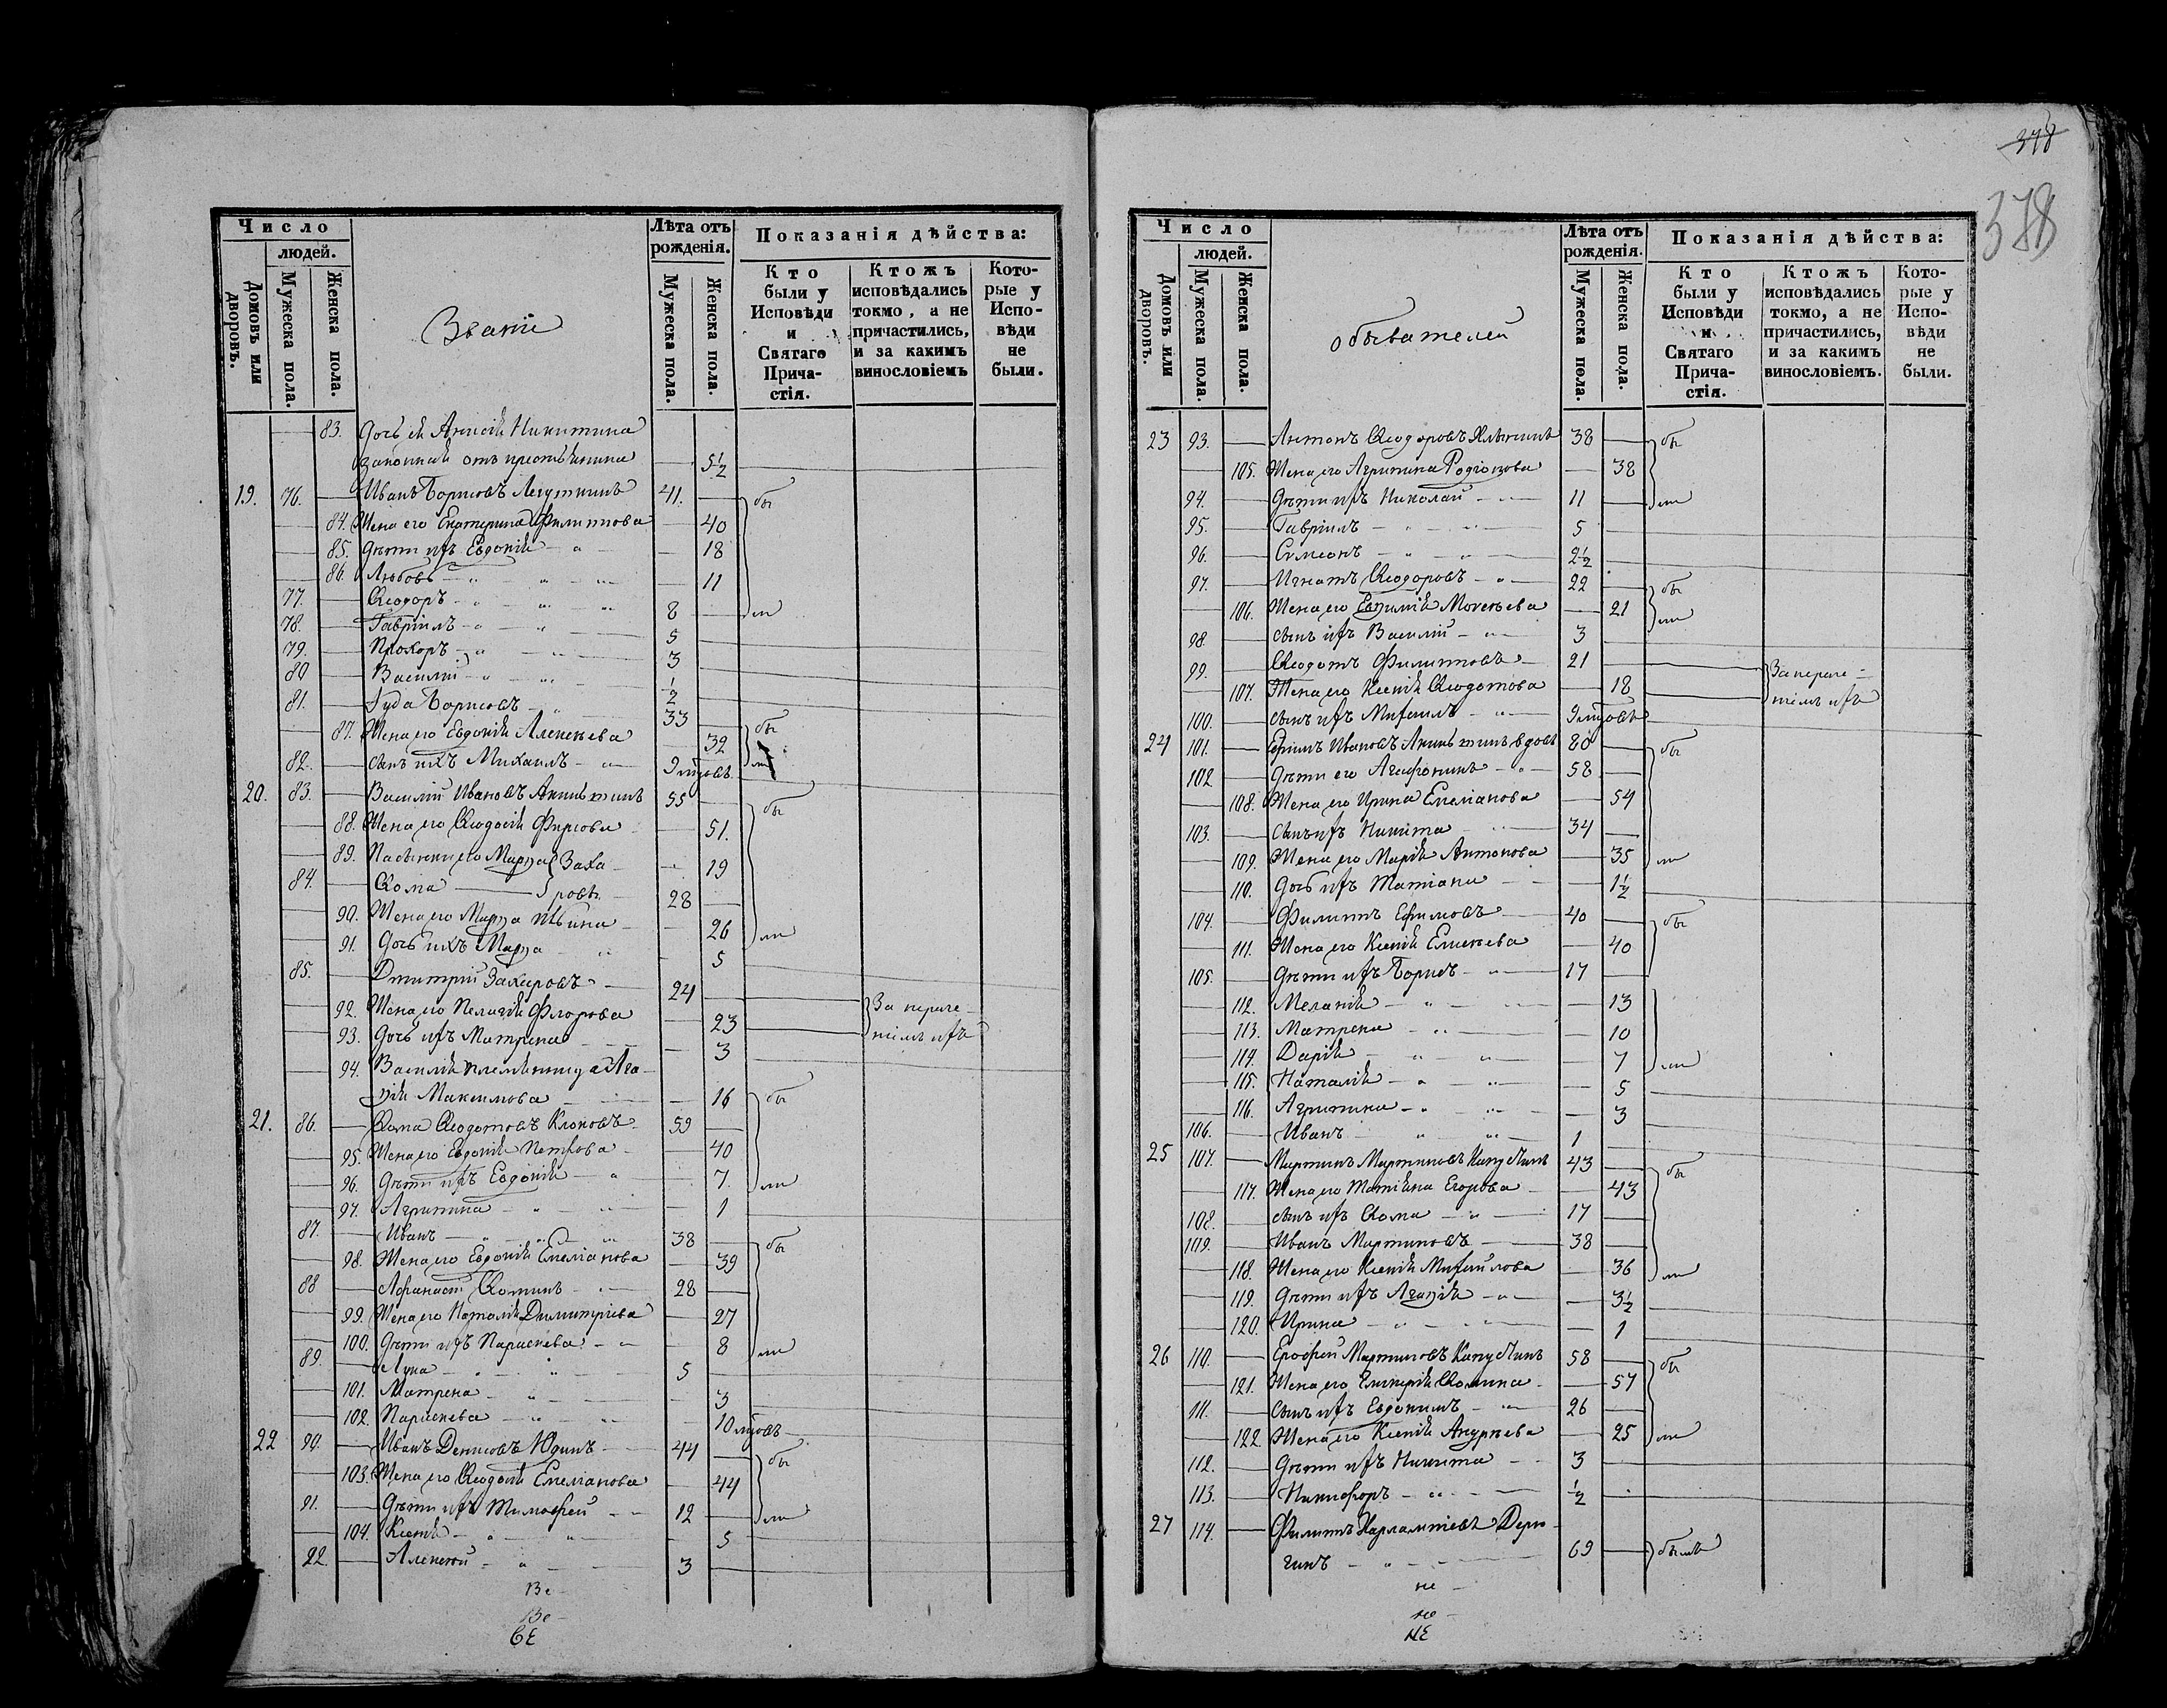 Число
людей.
Домовъ или дворовъ.
Мужеска пола.
Женска пола.
Званіе
Лѣта отъ рожденія.
Мужеска пола.
Женска пола.
Показанія дѣйства:
Кто были у Исповѣди и Святаго Прича-стія.
Ктожъ исповѣдались токмо, а не причастились, и за какимъ винословіемъ
Кото-рые у Испо-вѣди не были.
83. Дочь ея Анисія Никитина
законная отъ 5½
19. 76. Иванъ Борисовъ Лагуткинъ 41. бы
84. Жена его Екатерина Филиппова 40
85. Дѣти ихъ Евдокія 18
86. Любовь 11
77. Ѳеодоръ 8 ли
78. Гавріилъ 5
79. Прохоръ 3
80 Василій ½
81. Іуда Борисовъ 33 бы
87. Жена его Евдокія Алексѣева 32
82. сынъ ихъ Михаилъ 9 мцовъ ли
20. 83. Василій Ивановъ 55 бы
88. Жена его Ѳеодосія Фирсова 51.
89. Пасынки его Марѳа Заха- 19
84. Ѳома ровы 28
90. Жена его Марѳа Ильина 26 ли
91. Дочь ихъ Марѳа 5
85. Дмитрій Захаровъ 24
92. Жена его Пелагія Флорова 23 За пере-
93. Дочь ихъ Матрена 3
94. Василія племянница Ага-
ѳія Максимова 16 бы
21. 86. Ѳома Ѳеодотовъ Клоковъ 59
95. Жена его Евдокія Петрова 40
96. Дѣти ихъ Евдокія 7. ли
97. Агрипина 1
87. Иванъ 38 бы
98. Жена его Евдокія Емеліанова 39
88 Афанасій Ѳоминъ 28
99. Жена его Наталія Димитріева 27
100. Дѣти ихъ Параскева 8 ли
89. Лука 5
101. Матрена 3
102. Параскева 10 мцовъ
22 90. Иванъ Денисовъ Юдинъ 44 бы
103. Жена его Ѳеодосія Емеліанова 44
91. Дѣти ихъ Тимоѳей 12 ли
104. Ксенія 5
22. Алексей 3
Ве-
Ве-
СЕ
378
378
Число
людей.
Домовъ или дворовъ.
Мужеска пола.
Женска пола.
обывателей
Лѣта отъ рожденія.
Мужеска пола.
Женска пола.
Показанія дѣйства:
Кто были у Исповѣди и Святаго Прича-стія.
Ктожъ исповѣдались токмо, а не причастились, и за какимъ винословіемъ.
Кото-рые у Испо-вѣди не были.
23 93. Антонъ Ѳеодоровъ 38 бы
105. Жена его Агрипина Родіонова 38
94. Дѣти ихъ Николай 11 ли
95. Гавріилъ 5
96. Симеонъ 2½
97. Игнатъ Ѳеодоровъ 22 бы
106. Жена его Моисѣева 21 ли
98. сынъ ихъ Василій 3
99. Ѳеодотъ Филипповъ 21
107. Жена его Ксенія Ѳеодотова 18 За пере-
100. сынъ ихъ Михаилъ 9 мцовъ
24 101. Ефимъ Ивановъ вдовъ 80 бы
102 Дѣти его 58
108. Жена его Ирина Емеліанова 54
103. сынъ ихъ Никита 34
109. Жена его Марія Антонова 35 ли
110. Дочь ихъ Татіана 1½
104. Филиппъ Ефимовъ 40 бы
111. Жена его Ксенія Елисѣева 40
105. Дѣти ихъ Борисъ 17
112. Меланія 13
113. Матрена 10
114. Дарія 7 ли
115. Наталія 5
116. Агрипина 3
106. Иванъ 1
25 107. Мартинъ Мартиновъ 43 бы
117. Жена его Татіана Егорова 43
108. сынъ ихъ Ѳома 17
109. Иванъ Мартиновъ 38
118. Жена его Ксенія Михайлова 36 ли
119. Дѣти ихъ Агаѳія 3½
120. Ирина 1
26 110. Ерофей Мартиновъ 58 бы
121. Жена его Ѳомина 57
111. сынъ ихъ Евдокимъ 26
122 Жена его Ксенія 25 ли
112. Дѣти ихъ Никита 3
113. Никифоръ ½
27 114. Филиппъ Харлампіевъ Деря-
гинъ 69 былъ
не-
не-
НЕ